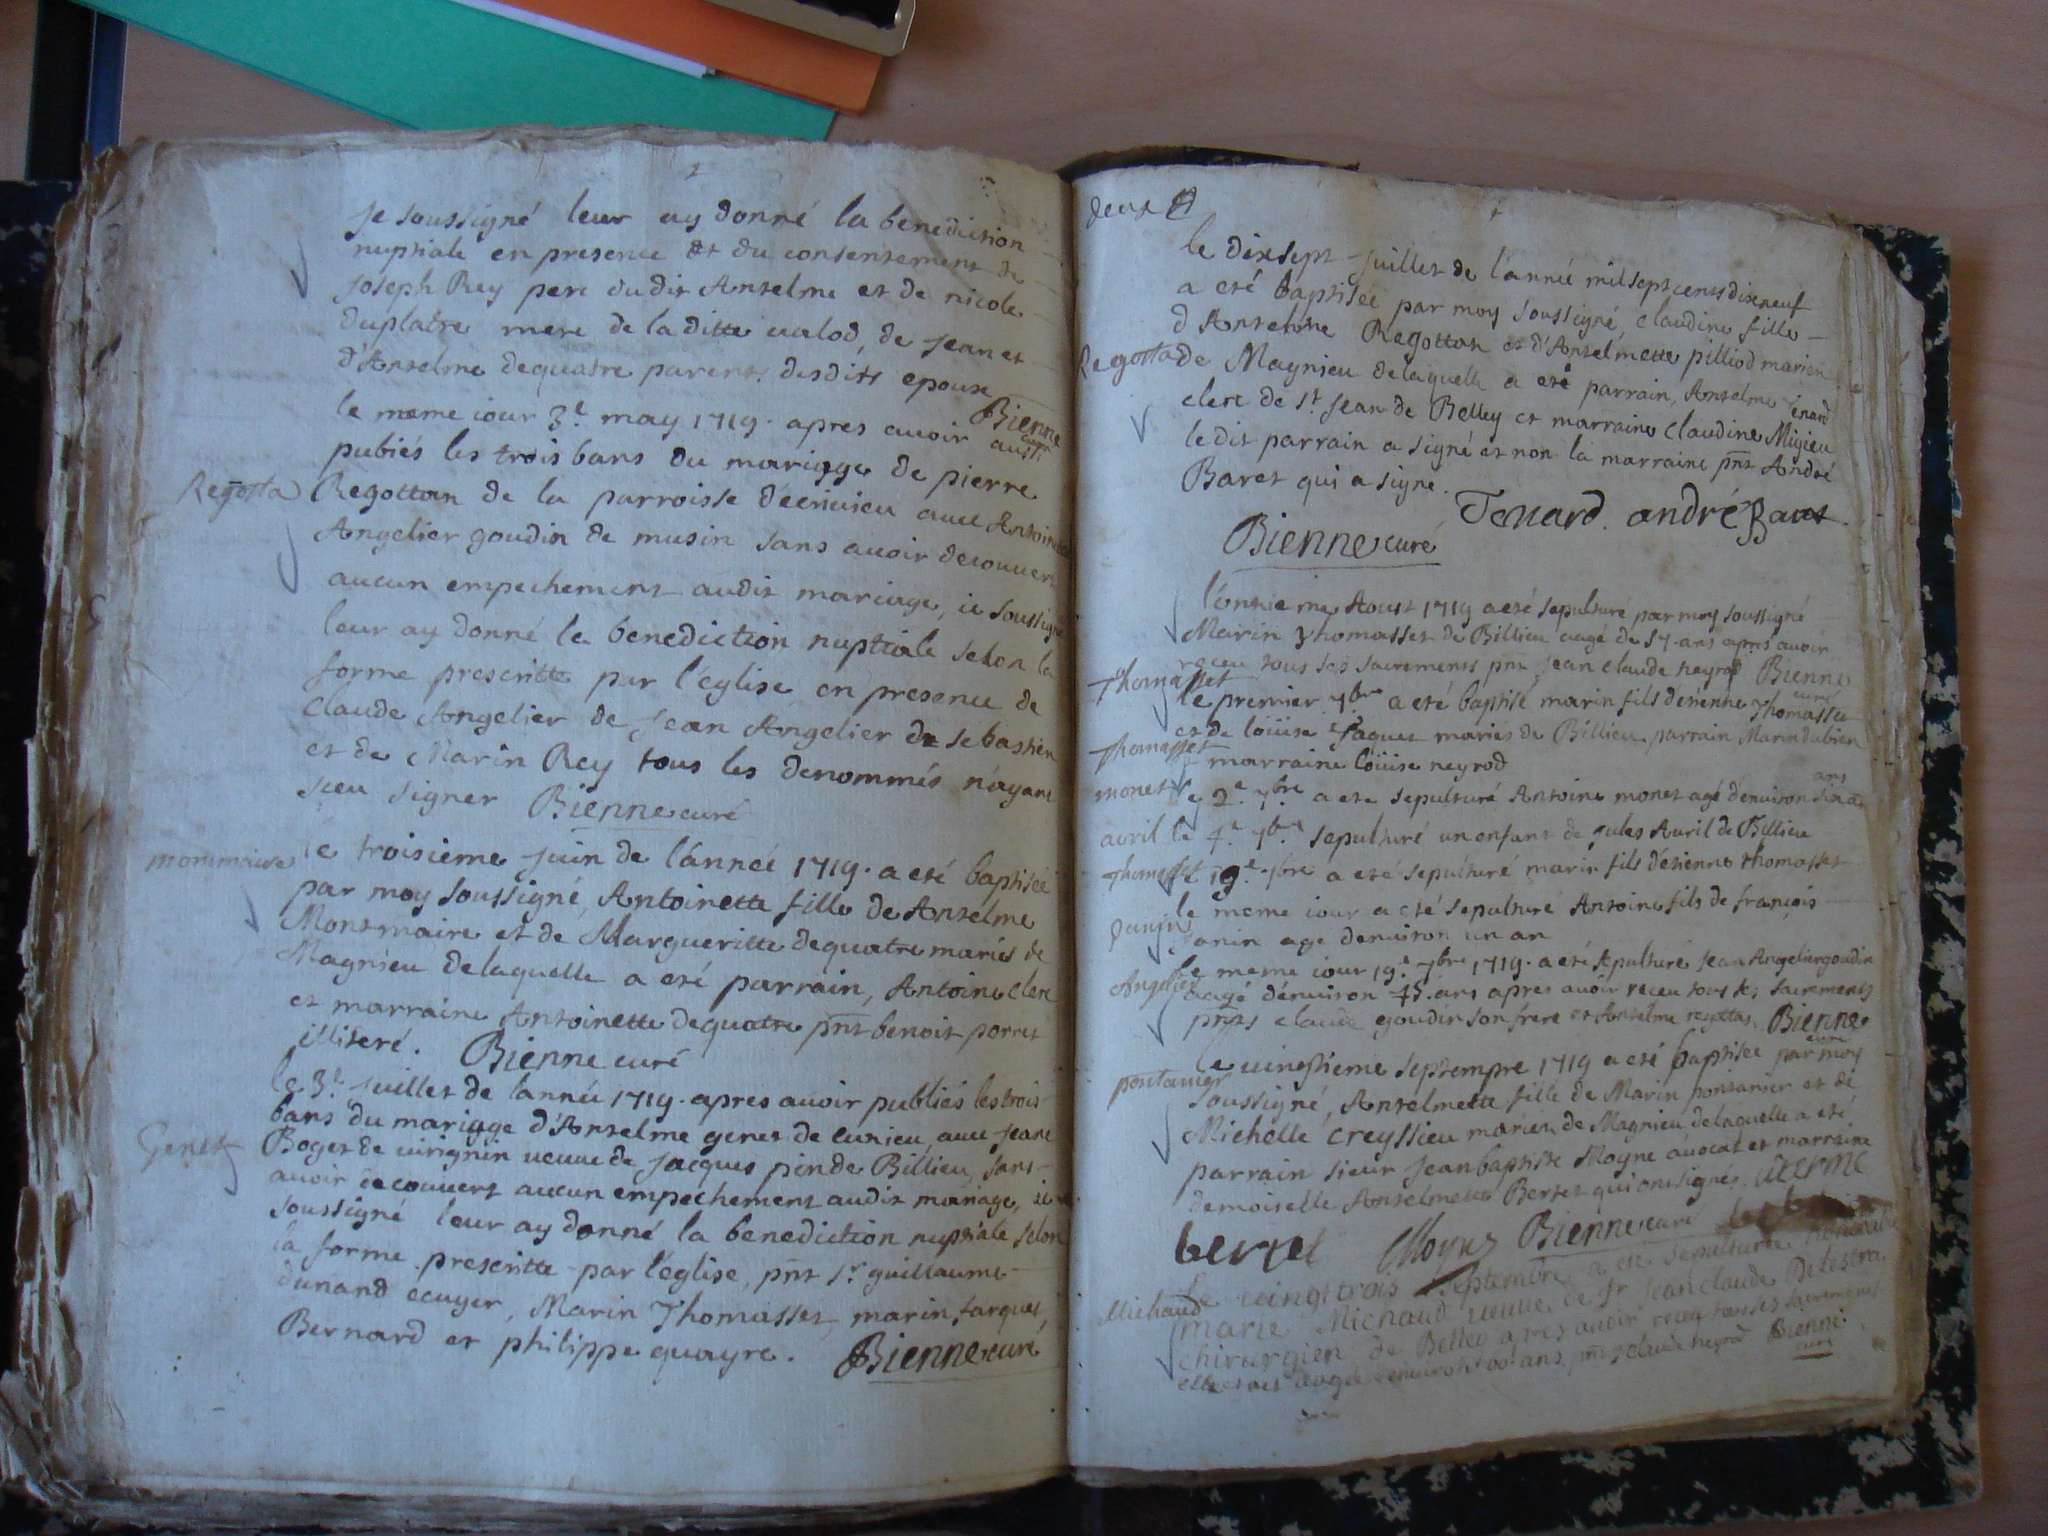 je soussigné leur ay donné la benediction
nuptiale en presence et du consentement de
Joseph Rey pere dudit Anselme et de nicole
duplatre mere de la ditte de Jean et
d'Anselme dequatre parents desdits epoux
Bienne curé
le meme iour 3e may 1719. apres avoir aussi
pubiés les trois bans du mariage de pierre
Regotta
Regottan de la parroisse d'ecrivieu avec Antoinette
Angelier goudin de musin sans avoir decouvert
aucun empechement audit mariage, ie soussigné
leur ay donné la benediction nuptiale selon la
forme prescritte par l'église en presence de
Claude Angelier de Jean Angelier de sebastien
et de Marin Rey tous les denommés n'ayant
sceu signer Bienne curé
monmaire
le troisieme juin de l'année 1719. a eté baptisée
par moy soussigné, Antoinette fille de Anselme
Montmaire et de Margueritte dequatre mariés de
Magnieu de laquelle a eté parrain, Antoine clerc
et marraine Antoinette dequatre pnt benoit porret
illiteré. Bienne curé
le 3e juillet de l'année 1719. apres avoir publiés les trois
bans du mariage d'Anselme genet de cuzieu avec Jeane
Genet
Boget de virignin veuve de Jacques pin de Billieu, sans
avoir decouvert aucun empechement audit mariage, ie
soussigné leur ay donné la benediction nuptiale selon
la forme prescritte par l'église, pnt sr guillaume
dunand ecuyer, Marin Thomasset, marin farques,
Bernard et philippe quayre. Bienne curé
deux
le dixsept juillet de l'année mil sept cents dixneuf
a eté baptisée par moy soussigné, claudine fille
d'Anselme Regottan et d'Anselmette pilliod mariés
Regotta
de Magnieu de laquelle a eté parrain, Anselme Tenard
clerc de st Jean de Belley et marraine claudine Migieu
le dit parrain a signé et non la marraine pnt André
Baret qui a signé.
Tenard. andré Baret
Bienne curé
l'onzieme Aoust 1719 a eté sepulturé par moy soussigné
Marin Thomasset de Billieu aagé de 57 ans apres avoir
receu tous ses sacrements pnt Jean claude neyrod Bienne curé
Thomasset
le premier 7bre a eté baptisé marin fils d'etienne Thomasset
et de loüise Jaquet mariés de Billieu parrain Marin dubien
Thomasset
marraine loüise neyrod
monet
le 2e 7bre a eté sepulturé Antoine monet agé d'environ six ans
avril
le 4e 7bre sepulturé un enfant de jules Avril de Billieu
Thomasset
le 19e 7bre a eté sepulturé marin fils d'etienne thomasset
le meme iour a eté sepulturé Antoine fils de françois
Janin agé d'environ un an
le meme iour 19e 7bre 1719. a eté sepulturé Jean Angelier goudin
Angelier
aagé d'environ 45 ans apres avoir receu tous les sacrements
pnts claude goudin son frere et Anselme regottas. Bienne curé
le vingtieme septempre 1719 a eté baptisée par moy
pontanier
soussigné, Anselmette fille de Marin pontanier et de
Michelle creyssieu mariés de Magnieu de laquelle a eté
parrain sieur Jean baptiste Moyne avocat et marraine
demoiselle Anselmette Bertet qui ont signés.
bertet Moyne Bienne curé
le vingt trois septembre a eté sepulturée honorable
Michaud
marie Michaud veuve de sr Jean claude
chirurgien de Belley apres avoir receu tous ses sacrements
elle etoit aagée d'environ 60 ans, pnt claude neyrod Bienne
curé